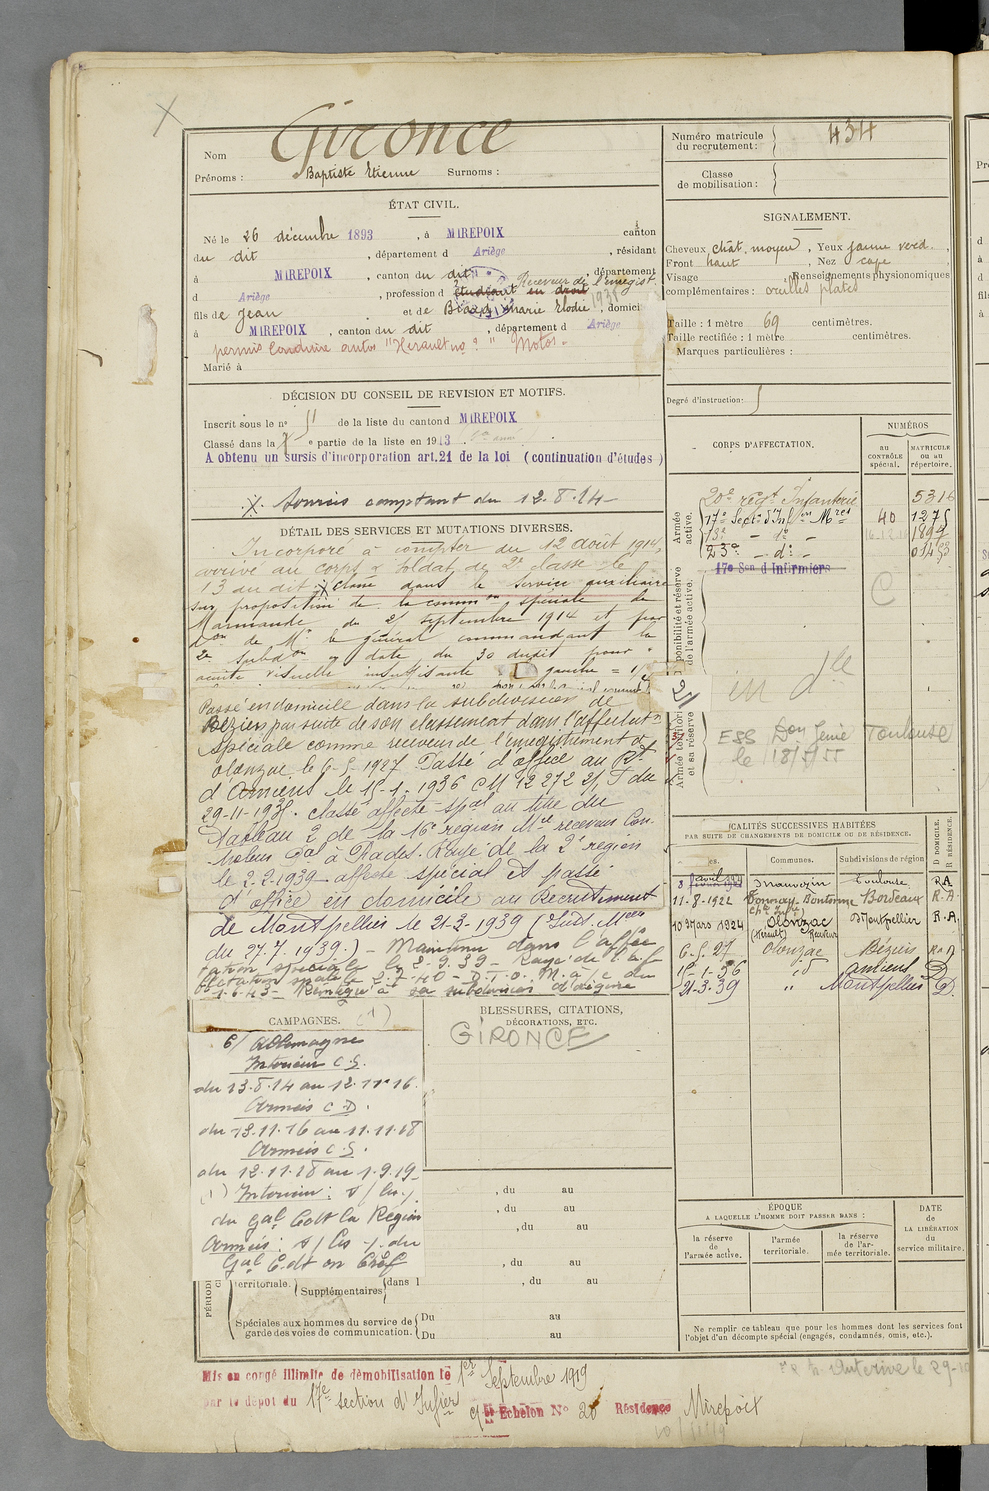 Gironce
Nom
Prénoms : Baptiste Etienne Surnoms :
ÉTAT CIVIL.
Né le 26 décembre 1893, à MIREPOIX canton
du dit, département d Ariège, résidant
à MIREPOIX, canton du dit, département
d Ariège, profession d étudiant en droit Receveur de l'enregist.
fils de Jean et de Marie Elodie, domicilié
à MIREPOIX, canton du dit, département d Ariège
permis Conduire autos "Hérault no ? " Motos.
Marié à
DÉCISION DU CONSEIL DE REVISION ET MOTIFS.
Inscrit sous le n° 51 de la liste du canton d MIREPOIX
Classé dans la e partie de la liste en 1913.
A obtenu un sursis d'incorporation art.21 de la loi (continuation d'études)
Soumis comptant du 12.8.14
DÉTAIL DES SERVICES ET MUTATIONS DIVERSES.
Incorporé à compter du 12 août 1914,
arrivé au corps & soldat de 2e classe le
13 du dit. Classé dans le service auxiliaire
sur proposition de la comm on spéciale de
Marmande du 21 septembre 1914 et par
don de Mr le général commandant la
2e subdon en date du 30 dudit pour
acuité visuelle insuffisante D gauche = 1/
Passé en domicile dans la subdivision de
Béziers par suite de son classement dans l'affectation
spéciale comme receveur de l'enregistrement à
olonzac le 6-5-1927 Passé d'office au Rt
d'Amiens le 15-1-1936 CM 12272 2/1 T du
29-11-1935. classé affecté spal au titre du
Tableau 2 de la 16e région Mle receveur Con-
trôleur Pal à Prades. Rayé de la 2e région
le 2-2-1939 affecté spécial et passé
d'office en domicile au Recrutement
de Montpellier le 21-3-1939 (
du 27.7.1939.) - Maintenu dans l'affec
tation spéciale le 2-9-39 - Rayé de l'af
fectation spéale le 2-7-40 - D.T.O. M.a/c du
1-6-43 - Réintégré à sa subdivision d'origine
CAMPAGNES. (1)
C/ Allemagne
Intérieur C.S.
du 13.8.14 au 12.11.16.
Armées C.D.
du 13.11.16 au 11.11.18
Armées C.S.
du 12.11.18 au 1.9.19
(1) Intérieur : s/
du Gal Cdt la Région
Armées : s/ du
Gal Cdt en Chef
BLESSURES, CITATIONS,
DÉCORATIONS, ETC.
GIRONCE
, du au
, du au
, du au
, du au
territoriale. Supplémentaires dans l , du au
Spéciales aux hommes du service de Du au
garde des voies de communication. Du au
Mis en congé illimité de démobilisation le 1er Septembre 1919
par le dépôt du 17e section d' Infier Echelon N° 20 Résidence Mirepoix
Numéro matricule
du recrutement : 434
Classe
de mobilisation :
SIGNALEMENT.
Cheveux chât. moyen, Yeux jaune verd.
Front haut, Nez cave
Visage, Renseignements physionomiques
complémentaires : oreilles plates
Taille : 1 mètre 69 centimètres.
Taille rectifiée : 1 mètre centimètres.
Marques particulières :
Degré d'instruction :
CORPS D'AFFECTATION.
NUMÉROS
AU
CONTRÔLE
spécial.
MATRICULE
OU AU
répertoire.
Armée
active.
20e régt Infanterie 5316
17e Secton d'Inf on Mres 40 1275
13e - do - 1897
23e - do - 01483
17e Son d'Infirmiers
C
in dle
Armée territor
et sa réserve
ESS Don Génie Toulouse
le 18/5/55
LOCALITÉS SUCCESSIVES HABITÉES
PAR SUITE DE CHANGEMENTS DE DOMICILE OU DE RÉSIDENCE.
Communes.
Subdivisions de région
D DOMICILE.
R RÉSIDENCE.
Mauvezin Toulouse R.A
11-8-1922 Tonnay-Boutonne Bordeaux R.A.
10 Mars 1924 Olonzac Montpellier R.A.
(Hérault) Receveur
6-5-27 Olonzac Béziers R.A
15-1-36 id amiens D
21-3-39 " Montpellier D.
ÉPOQUE
A LAQUELLE L'HOMME DOIT PASSER DANS :
la réserve
de
l'armée active.
l'armée
territoriale.
la réserve
de l'ar-
mée territoriale.
DATE
de
LA LIBÉRATION
du
service militaire.
Ne remplir ce tableau que pour les hommes dont les services font
l'objet d'un décompte spécial (engagés, condamnés, omis, etc.).